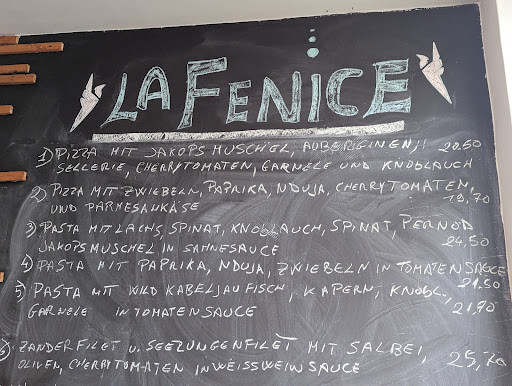 LA FENICE
1) PIZZA MIT JAKOPS MUSCHEL, AUBERIGINEN,, 20.50
SELLERIE, CHERRYTOMATEN, GARNELE UND KNOBLAUCH
2) PIZZA MIT ZWIEBELN, PAPRIKA, NDUJA, CHERRYTOMATEN,
UND PARMESANKÄSE 19,70
3) PASTA MIT LACHS, SPINAT, KNOBLAUCH, SPINAT, PERNOD
JAKOPSMUSCHEL IN SAHNESAUCE 24,50
4) PASTA MIT PAPRIKA, NDUJA, ZWIEBELN IN TOMATENSAUCE
21.50
5) PASTA MIT WILD KABELJAUFISCH, KAPERN, KNOBL.
GARNELE IN TOMATENSAUCE 21,70
6) ZANDERFILET U. SEEZUNGENFILET MIT SALBEI,
OLIVEN, CHERRYTOMATEN IN WEISSWEIN SAUCE 25,70